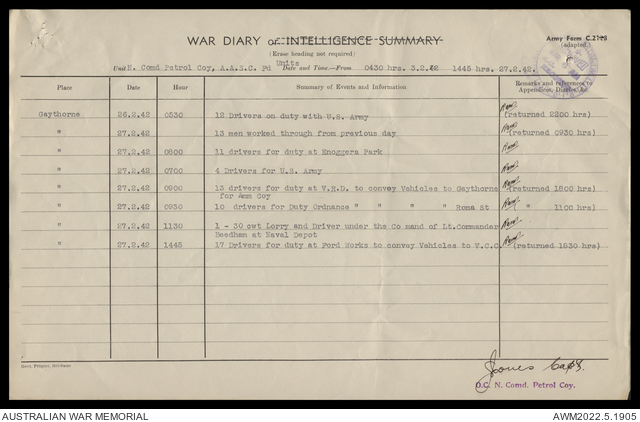 WAR DIARY or INTELLIGENCE SUMMARY
Army Form C.2118
(Erase heading not required)
(adapted.)
Units
Unit N. Comd Petrol Coy, A.A.S.C. Fd Date and Time—From 0430 hrs. 3.2.42 1445 hrs. 27.2.42.
Place Date Hour Summary of Events and Information Remarks and references to
Appendices, Diaries, &c.
Gaythorne 26.2.42 0530 12 Drivers on duty with U.S. Army (returned 2200 hrs)
" 27.2.42 13 men worked through from previous day (returned 0930 hrs)
" 27.2.42 0800 11 drivers for duty at Enoggera Park
" 27.2.42 0700 4 Drivers for U.S. Army
" 27.2.42 0900 13 drivers for duty at V.R.D. to convey Vehicles to Gaythorne (returned 1800 hrs)
for Amm Coy
" 27.2.42 0930 10 drivers for Duty Ordnance " " " " Roma St " 1100 hrs)
" 27.2.42 1130 1 - 30 cwt Lorry and Driver under the Co mand of Lt.Commander
Beedham at Naval Depot
" 27.2.42 1445 17 Drivers for duty at Ford Works to convey Vehicles to V.C.C. (returned 1830 hrs)
Capt.
O.C. N. Comd. Petrol Coy.
AUSTRALIAN WAR MEMORIAL
AWM2022.5.1905